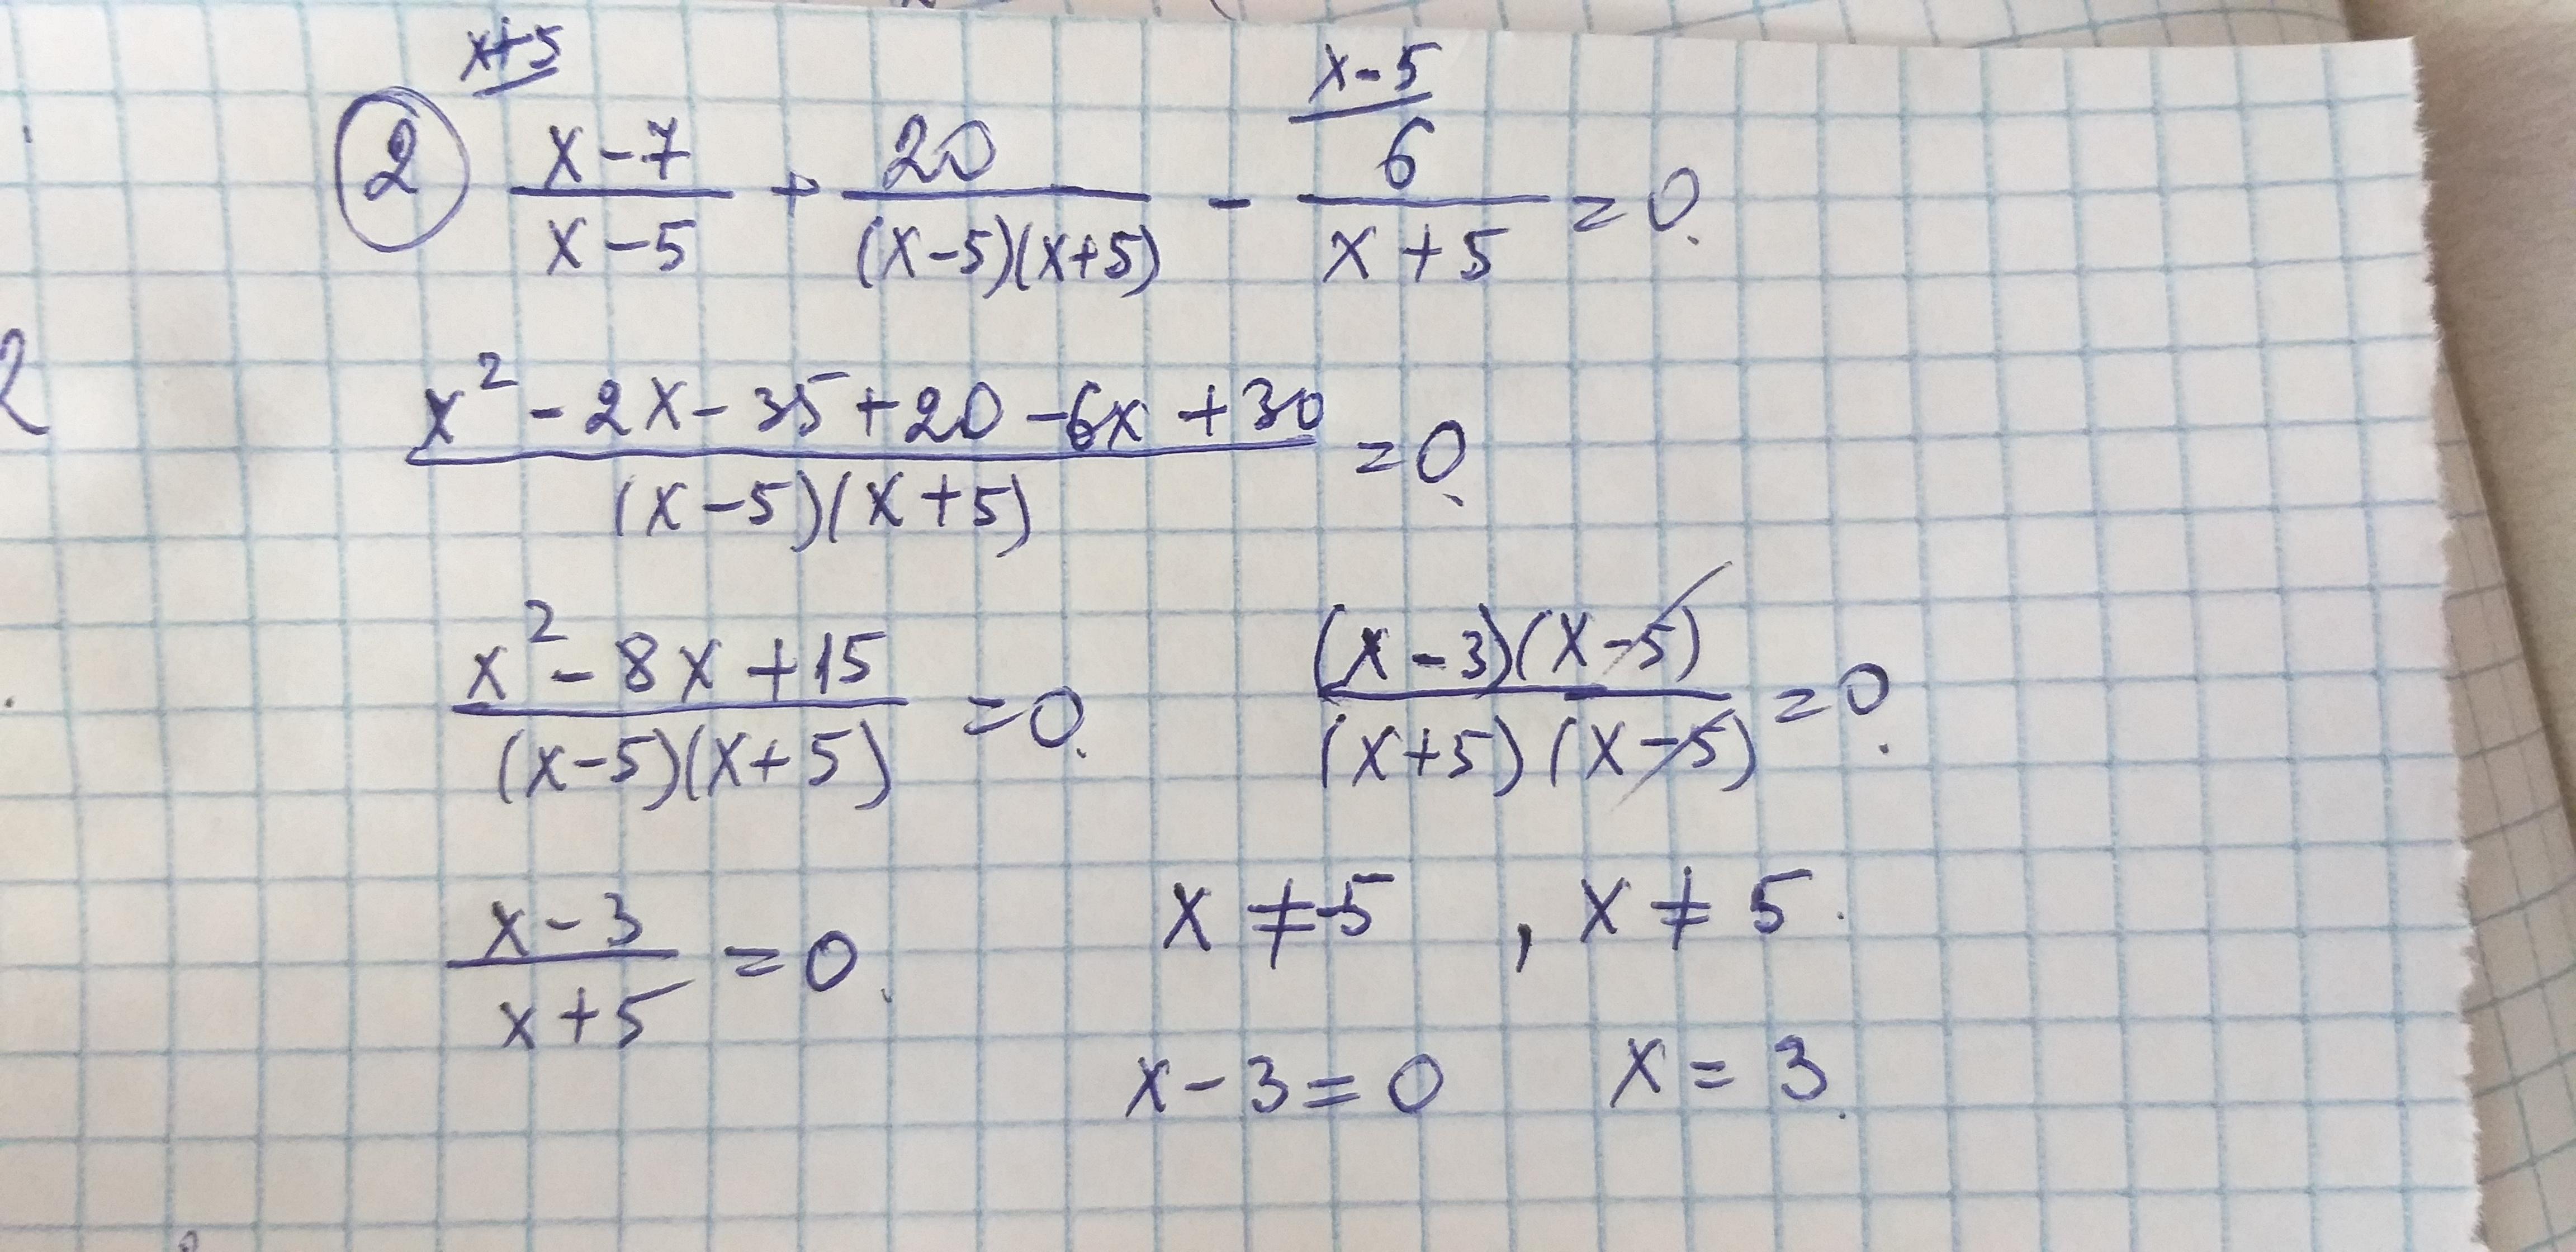 x+5 x-5
② (x-7)/(x-5) + 20/((x-5)(x+5)) - 6/(x+5) = 0.
(x² - 2x - 35 + 20 - 6x + 30)/((x-5)(x+5)) = 0.
(x² - 8x + 15)/((x-5)(x+5)) = 0. ((x-3)(x-5))/((x+5)(x-5)) = 0.
(x-3)/(x+5) = 0. x ≠ -5 , x ≠ 5.
x - 3 = 0 x = 3.